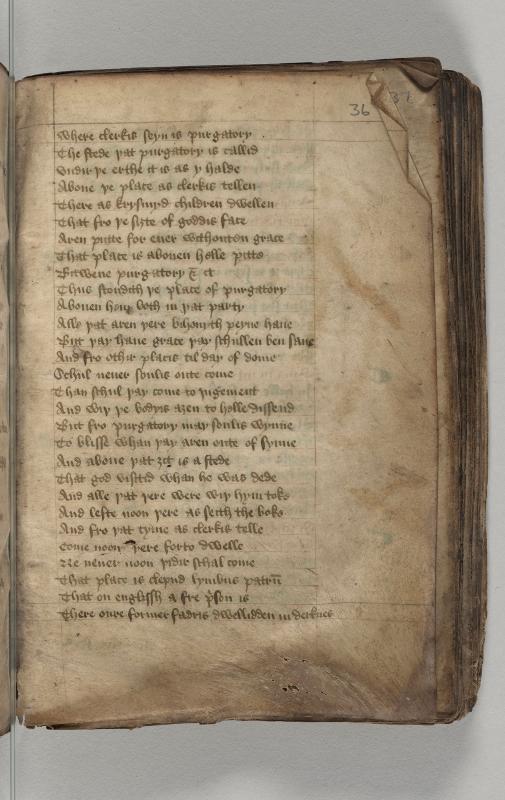 36 37
Where clerkis seyn is purgatory
The stede yat purgatory is callid
Vndir ye erthe it is as y halde
Aboue ye place as clerkis tellen
There as krysuyd children dwellen
That fro ye siȝte of goddis face
Aren putte for euer withouten grace
That place is abouen helle pitte
Bitwene purgatory & it
Thus stondith ye place of purgatory
Abouen hem both in yat party
Alle yat aren yere bihouith peyne haue
But yay haue grace yay schullen ben saue
And fro othir placis til day of dome
Schul neuer soulis oute come
Than schul yay come to iugement
And wiy ye bodyis aȝen to helle dissend
But fro purgatory may soulis wynne
To blisse whan yay aren oute of synne
And aboue yat ȝit is a stede
That god visitid whan he was dede
And alle yat yere were wiy hym toke
And lefte noon yere as seith the boke
And fro yat tyme as clerkis telle
Come noon yere forto dwelle
Ne neuer noon yidir schal come
That place is clepud lymbus patrū
That on englissh a fre p̄son is
There oure former fadris dwellidden in derknes